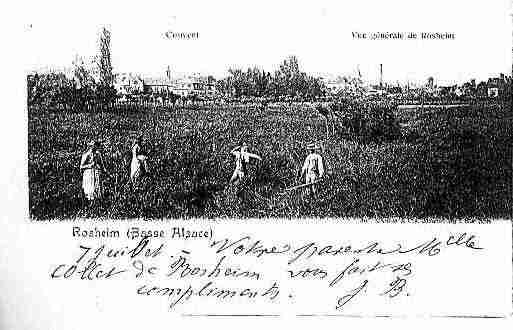 Couvent
Vue générale de Rosheim
Rosheim (Basse Alsace)
7 juillet – Notre parente Mlle
Collet de Rosheim vous fait ses
compliments. J. B.